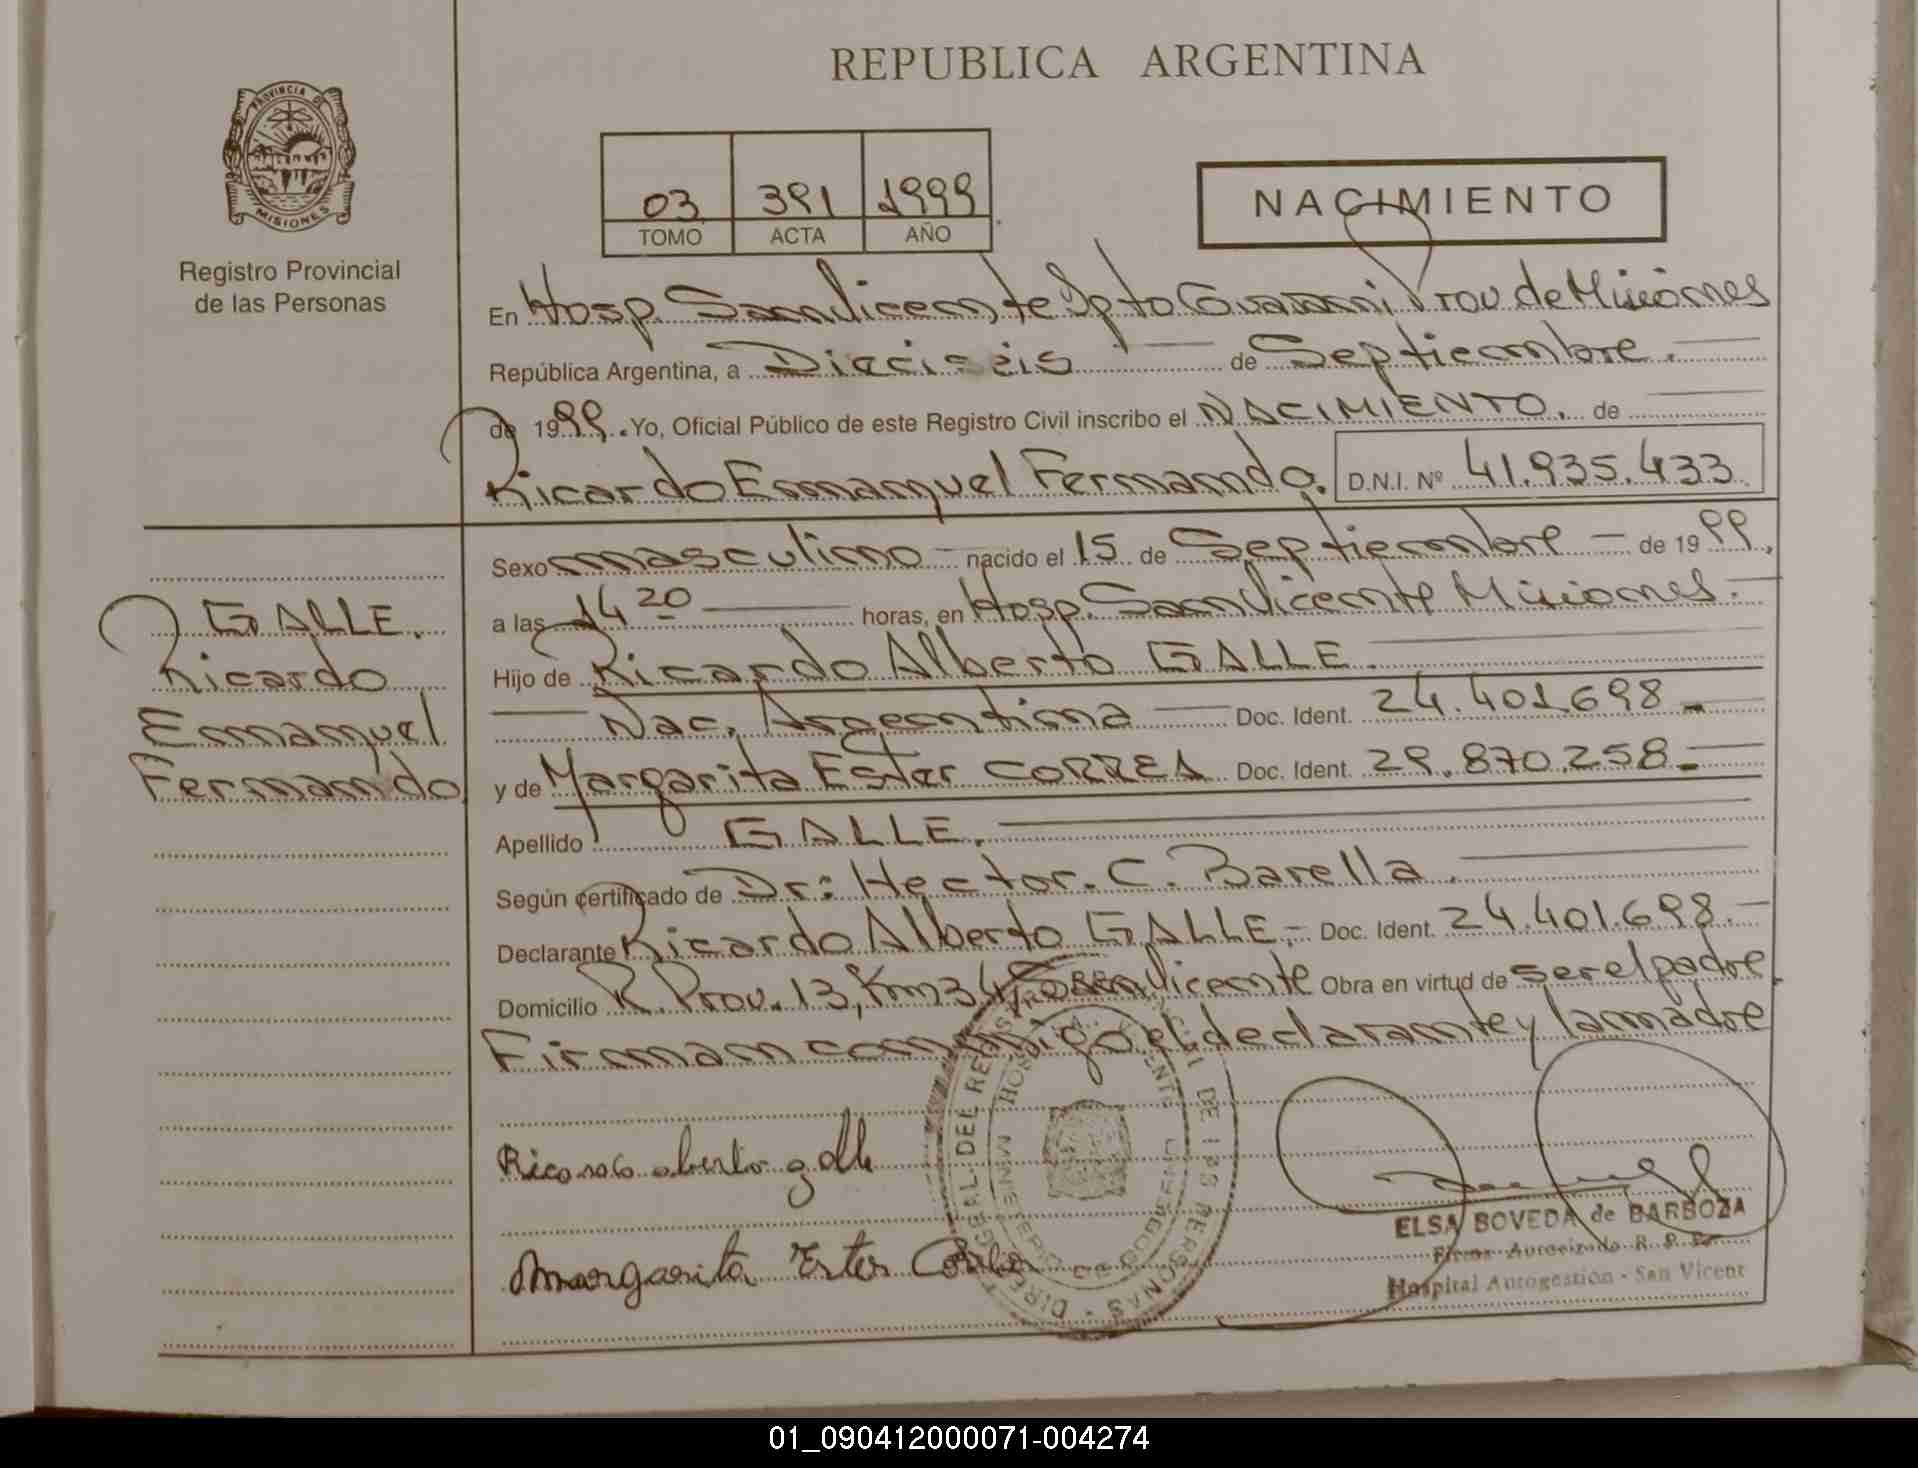 REPUBLICA ARGENTINA
PROVINCIA DE
MISIONES
Registro Provincial
de las Personas
03 391 1999
TOMO ACTA AÑO
NACIMIENTO
En Hosp. San Vicente Dpto Guarani Prov de Misiones
República Argentina, a Dieciseis de Septiembre.
de 1999. Yo, Oficial Público de este Registro Civil inscribo el NACIMIENTO. de
Ricardo Emmanuel Fernando. D.N.I. Nº 41.935.433
GALLE.
Ricardo
Emmanuel
Fernando.
Sexo masculino nacido el 15 de Septiembre - de 1999.
a las 14 20 horas, en Hosp. San Vicente Misiones.
Hijo de Ricardo Alberto GALLE.
Nac. Argentina Doc. Ident. 24.401.698
y de Margarita Ester CORREA Doc. Ident. 29.870.258
Apellido GALLE.
Según certificado de Dr: Hector. C. Barella.
Declarante Ricardo Alberto GALLE.- Doc. Ident. 24.401.698.
Domicilio R. Prov. 13, Km 34 San Vicente Obra en virtud de ser el padre.
Firman conmigo el declarante y la madre
Ricardo alberto galle
Margarita Ester Correa
ELSA BOVEDA de BARBOZA
Firma Autorizada R. P. P.
Hospital Autogestión - San Vicent
01_090412000071-004274